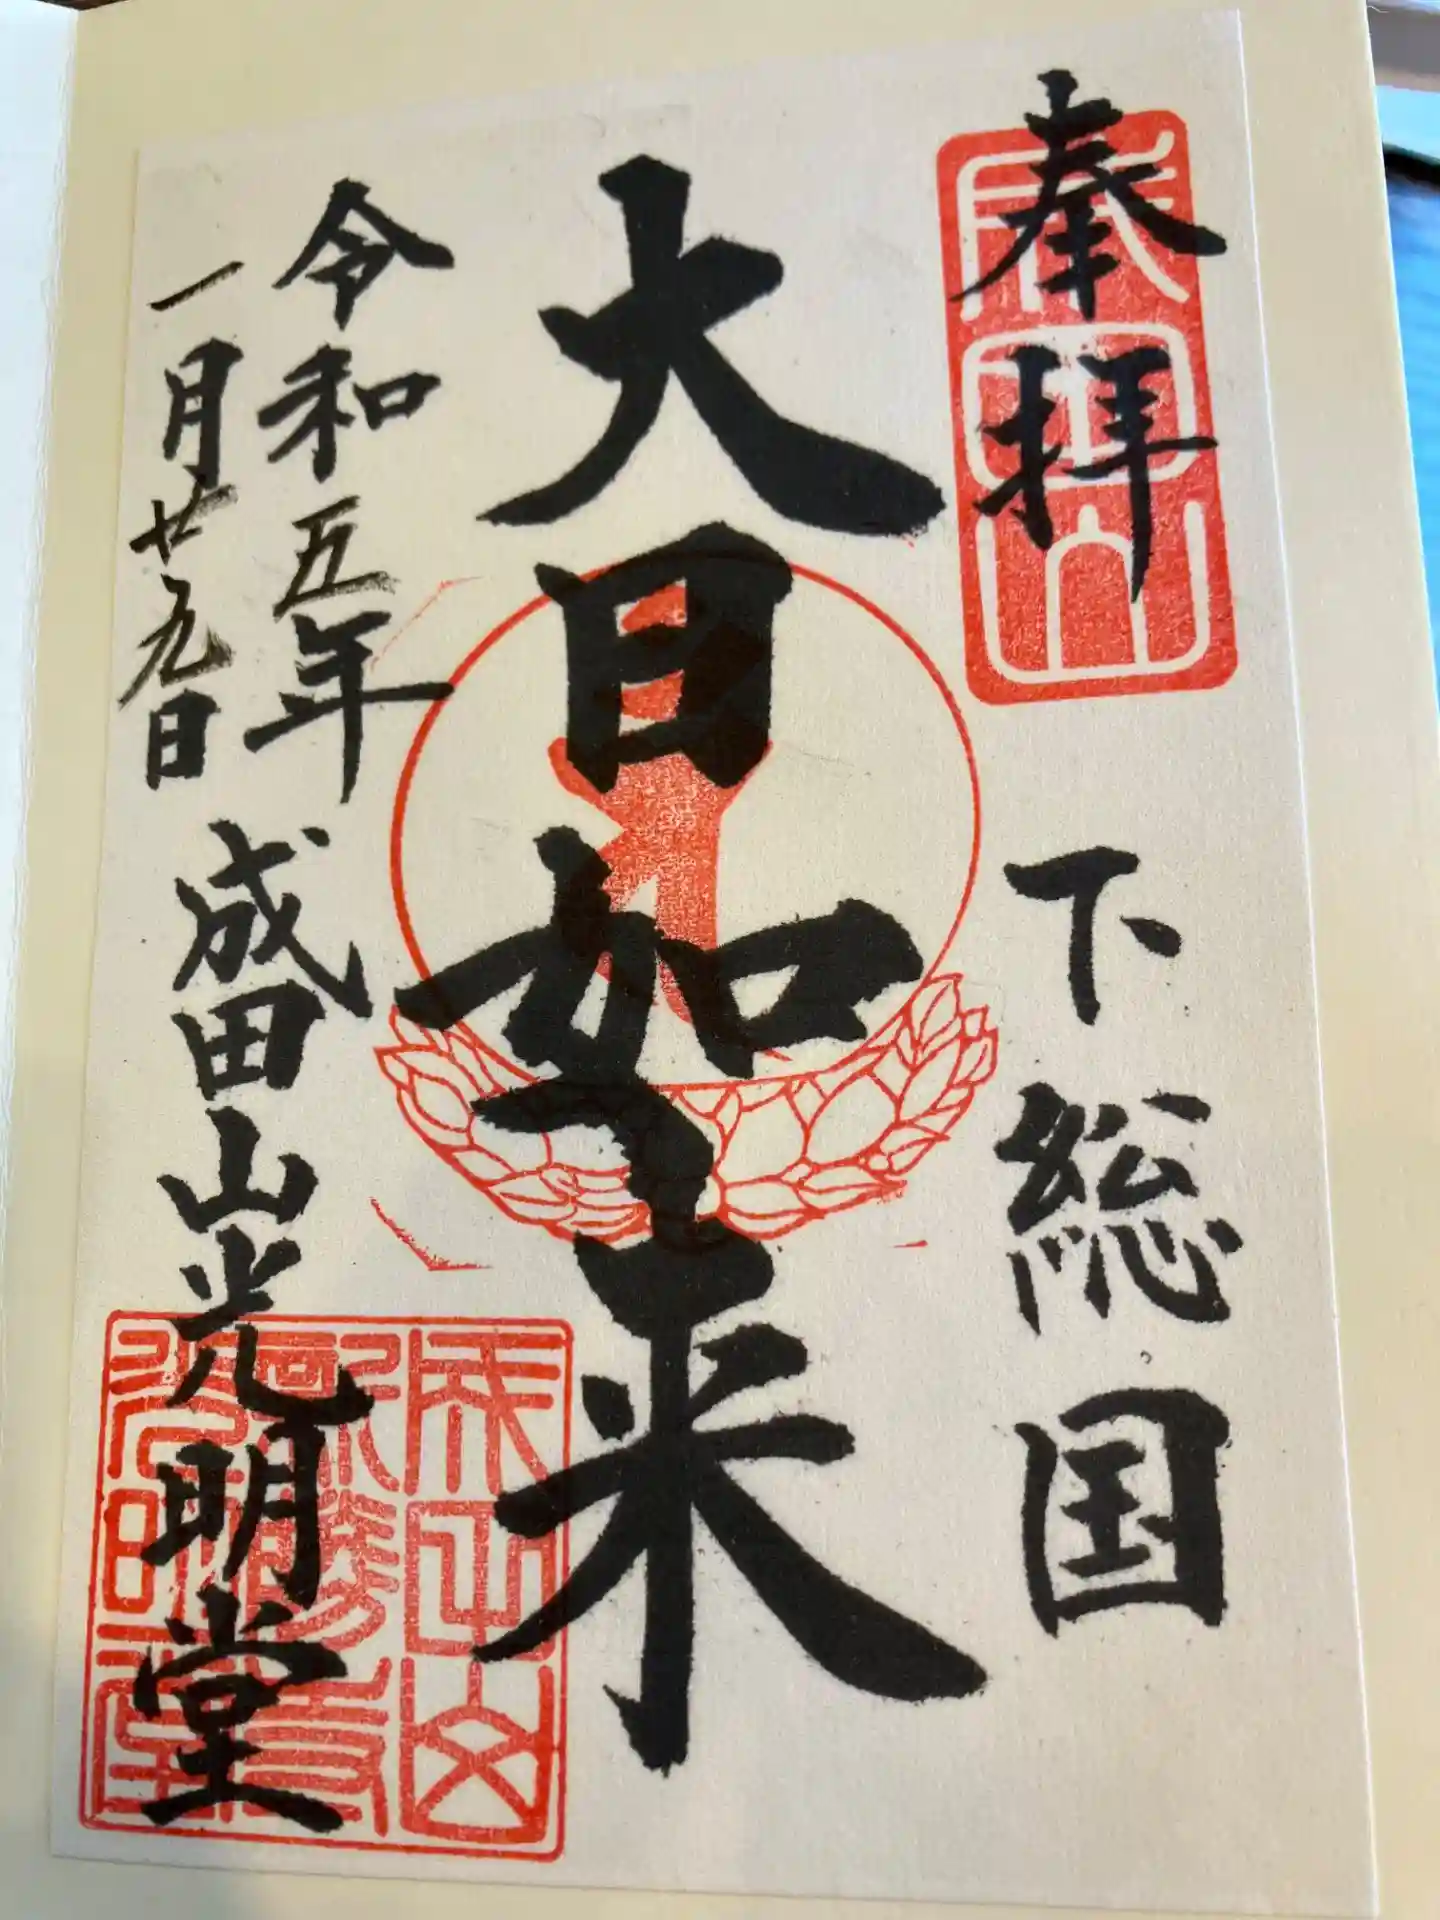 奉拝
成田山
下総国
大日如来
令和五年
一月廿九日
成田山光明堂